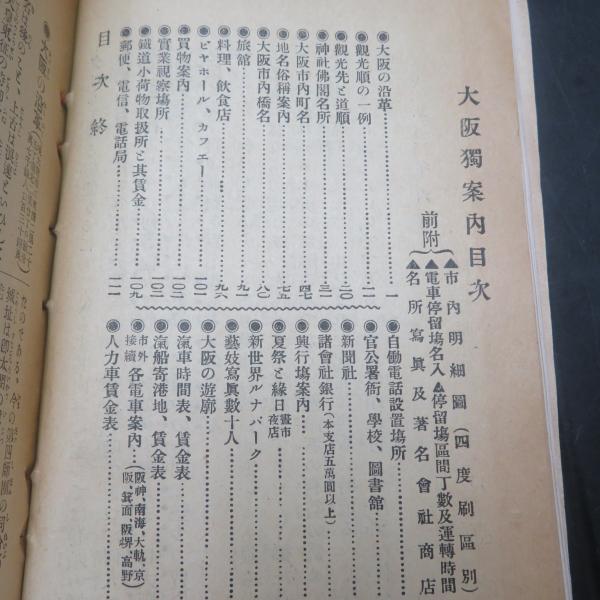 大阪獨案內目次
前附
▲市內明細圖(四度刷區別)
▲電車停留塲名入▲停留塲區間丁數及運轉時間
▲名所寫眞及著名會社商店
●大阪の沿革……一
●觀光順の一例……一一
●觀光先と道順……二〇
●神社佛閣名所……三一
●大阪市內町名……四七
●地名俗稱案內……七五
●大阪市內橋名……八〇
●旅館……九一
●料理、飮食店……九六
●ビヤホール、カフエー……一〇一
●買物案內……一〇二
●實業視察塲所……一〇三
●鐵道小荷物取扱所と其賃金……一〇九
●郵便、電信、電話局……一一一
●自働電話設置塲所
●官公署衙、學校、圖書館
●新聞社
●諸會社銀行(本支店五萬圓以上)
●興行塲案內
●夏祭と緣日晝市夜店
●新世界ルナパーク
●藝妓寫眞數十人
●大阪の遊廓
●滊車時間表、賃金表
●滊船寄港地、賃金表
●市外接續各電車案內(阪神、南海、大軌、京阪、箕面、阪堺、高野)
●人力車賃金表
目次終
●大阪の沿革